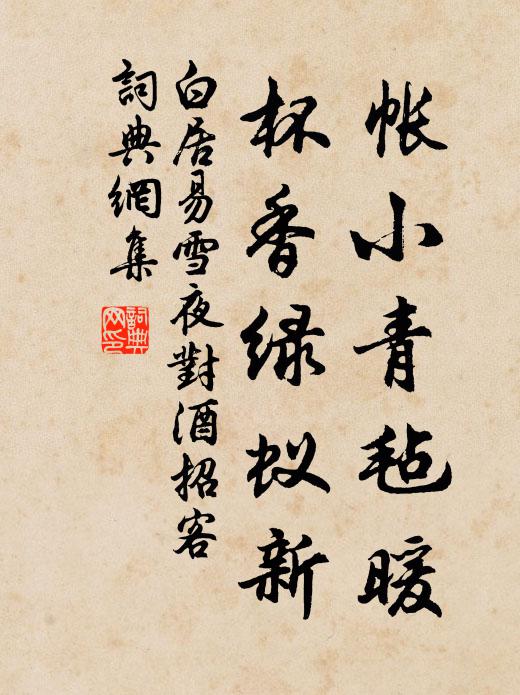 帐小青毡暖
杯香绿蚁新
白居易雪夜對酒招客
詞典網集
詞典网印